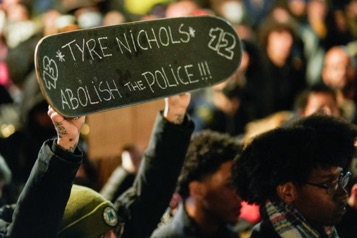 *TYRE NICHOLS*
ABOLISH THE POLICE!!!